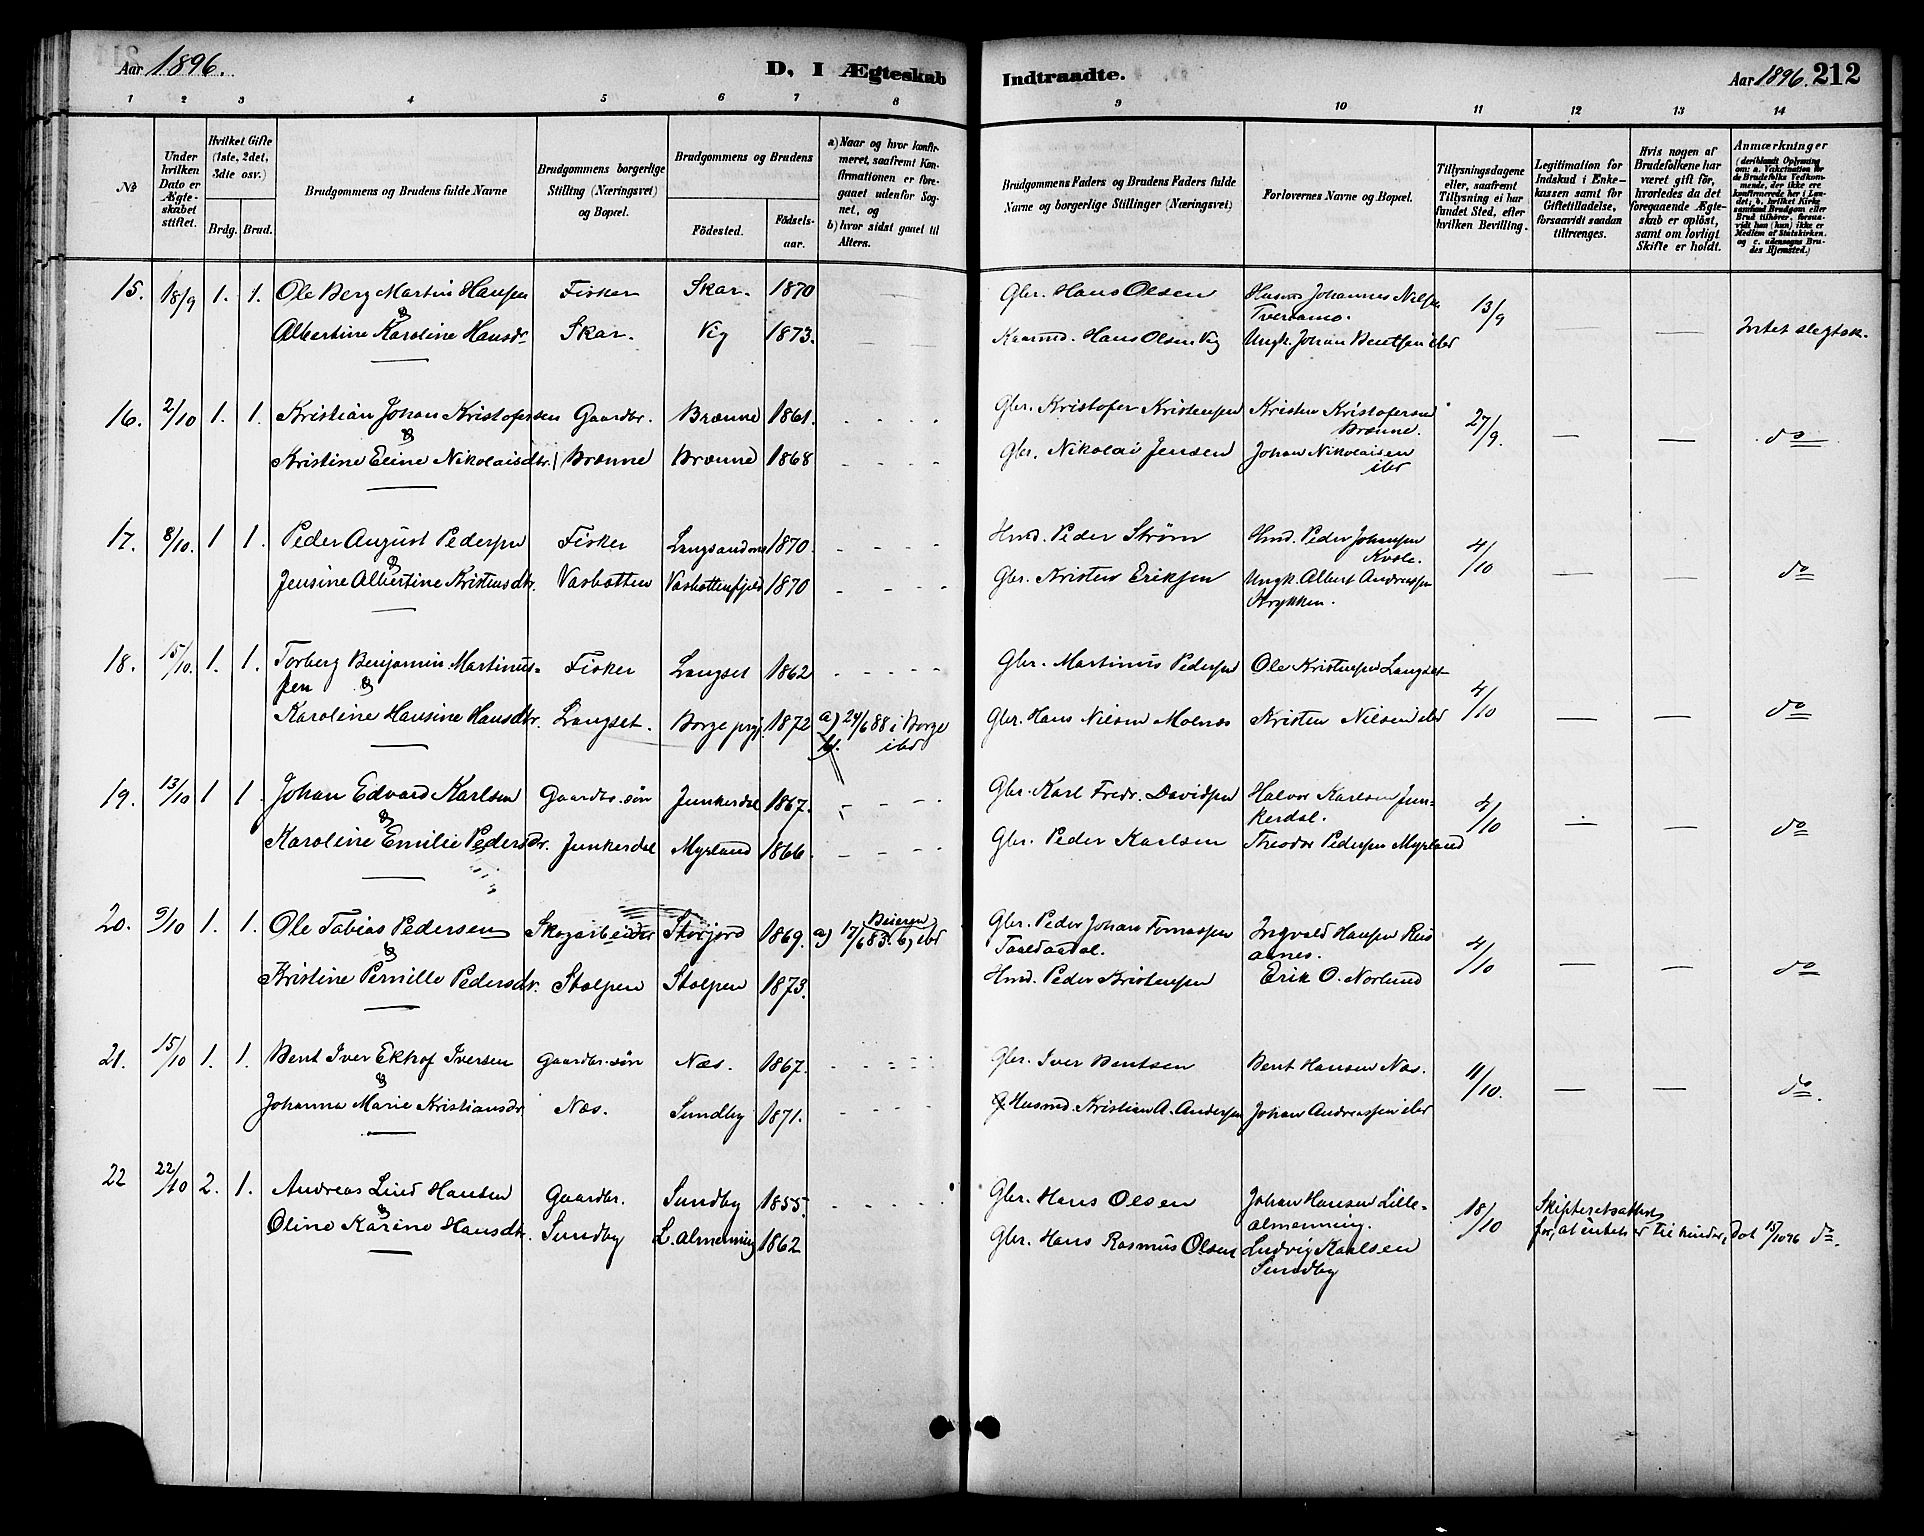 Aar 1896.
D, I Ægteskab
Indtraadte.
Aar 1896. 212
1 2 3 4 5 6 7 8 9 10 11 12 13 14
№
Under hvilken Dato er Ægteskabet stiftet.
Hvilket Gifte (1ste, 2det, 3dte osv.)
Brdg. Brud.
Brudgommens og Brudens fulde Navne
Brudgommens borgerlige Stilling (Næringsvei) og Bopæl.
Brudgommens og Brudens
Fødested.
Fødselsaar.
a) Naar og hvor konfirmeret, saafremt Konfirmationen er foregaaet udenfor Sognet, og
b) hvor sidst gaaet til Alters.
Brudgommens Faders og Brudens Faders fulde Navne og borgerlige Stillinger (Næringsvei)
Forlovernes Navne og Bopæl.
Tillysningsdagene eller, saafremt Tillysning ei har fundet Sted, efter hvilken Bevilling.
Legitimation for Indskud i Enkekassen samt for Giftetilladelse, forsaavidt saadan tiltrænges.
Hvis nogen af Brudefolkene har været gift før, hvorledes da det foregaaende Ægteskab er opløst, samt om lovligt Skifte er holdt.
Anmærkninger
15. 18/9 1. 1. Ole Berg Martin Hansen Fisker Skar. 1870 Gbr. Hans Olsen Johannes Nilsen 13/9
&
Albertine Karoline Hansdr. Skar. Vig 1873. Hans Olsen Vig Ungk. Johan Bentsen ibd Intet slegtsk.
16. 2/10 1. 1. Kristian Johan Kristofersen Gaardbr. Brænne 1861. Gbr. Kristofer Kristensen Kristen Kristofersen Brænne. 27/9.
&
Kristine Eline Nikolaisdtr. Brænne Brænne 1868 Gbr. Nikolai Jensen Johan Nikolaisen ibd do
17. 8/10. 1 1. Peder August Pedersen Fisker 1870. Hmd. Peder Strøm Hmd. Peder Johnsen 4/10
&
Jensine Albertine Kristensdtr. Vasbotten Vasbottenfjeld 1870 Gbr. Kristen Eriksen Ungk. Albert Andreassen do
18. 15/10. 1. 1. Torberg Benjamin Martinussen Fisker Langset 1862 Gbr. Martinus Pedersen Ole Kristensen Langset 4/10
&
Karoline Hansine Hansdtr. Langset. Borge prgj. 1872 a) 24/6 88 i Borge ibd Gbr. Hans Nilsen Molnes Kristen Nilsen ibd do
19. 13/10 1 1. Johan Edvard Karlsen Gaardbr. søn Junkerdal 1867. Gbr. Karl Fredr. Davidsen Halvor Karlsen Junkerdal. 4/10
&
Karoline Emilie Pedersdr. Junkerdal Myrland 1866. Gbr. Peder Karlsen Theodor Pedersen Myrland do
20. 9/10 1. 1. Ole Tobias Pedersen Skogarbeider Storjord 1869. a) 17/6 83. Beieren b) ibd Gbr. Peder Johan Tomassen Ingvald Hansen 4/10
&
Kristine Pernille Pedersdr. Stolpen Stolpen 1873. Hmd. Peder Kristensen Erik O. Norlund do
21. 15/10 1. 1. Bent Iver Ekhof Iversen Gaardbr. søn Næs. 1867. Gbr. Iver Bentsen Bent Hansen Næs. 11/10.
&
Johanna Marie Kristiansdr. Næs. Sundby 1871. Husmd. Kristian A. Andersen Johan Andreassen ibd do.
22 22/10 2. 1. Andreas Lind Hansen Gaardbr. Sundby 1855. Gbr. Hans Olsen Johan Hansen Lillealmenning. 18/10
&
Oline Karine Hansdtr. Sundby L. almenning 1862 Gbr. Hans Rasmus Olsen Ludvig Karlsen Sundby
Skifteretsattest for, at intet er til hinder, dat 15/10 96 do.